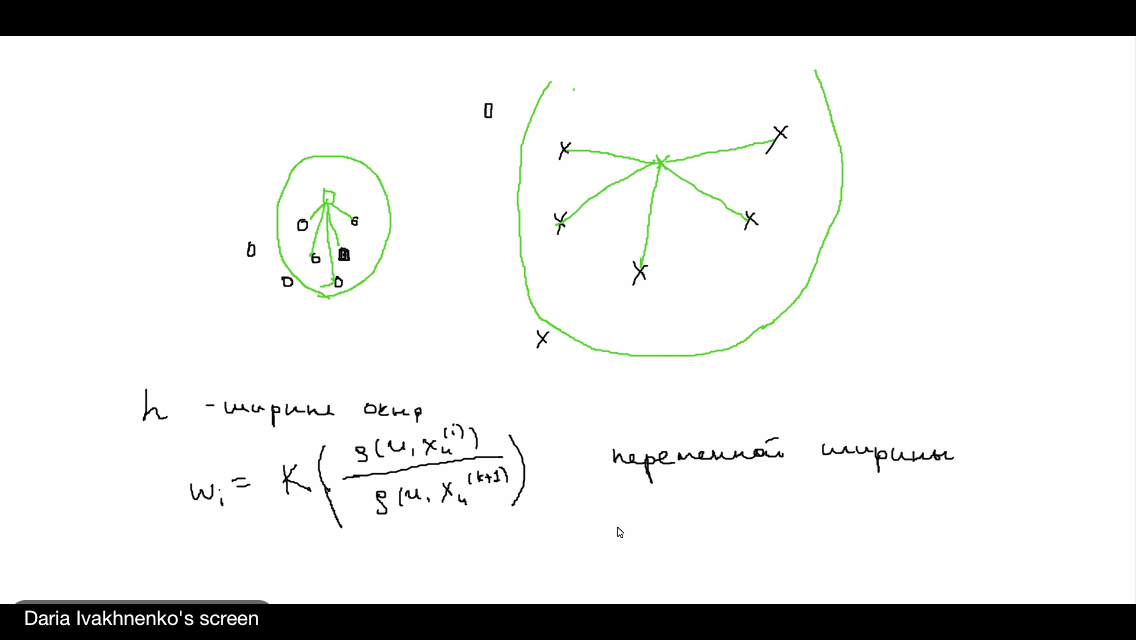 h - ширина окна
wᵢ = K(ρ(u, xᵤ⁽ⁱ⁾) / ρ(u, xᵤ⁽ᵏ⁺¹⁾))
переменной ширины
Daria Ivakhnenko's screen